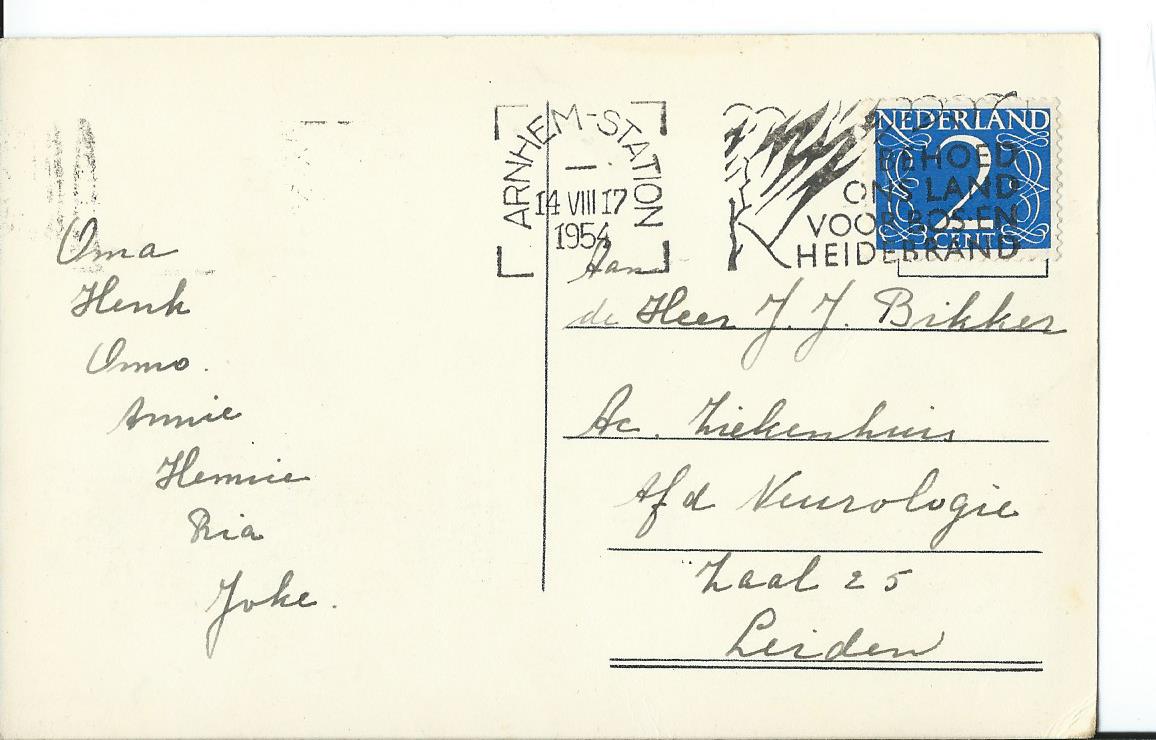 ARNHEM-STATION
14 VIII 17
1954
NEDERLAND
2
CENT
BEHOED
ONS LAND
VOOR BOS-EN
HEIDEBRAND
Oma
Henk
Onno.
Annie
Hennie
Ria
Joke.
Aan
de Heer J. J. Bikker
Ac. Ziekenhuis
Afd Neurologie
Zaal 25
Leiden